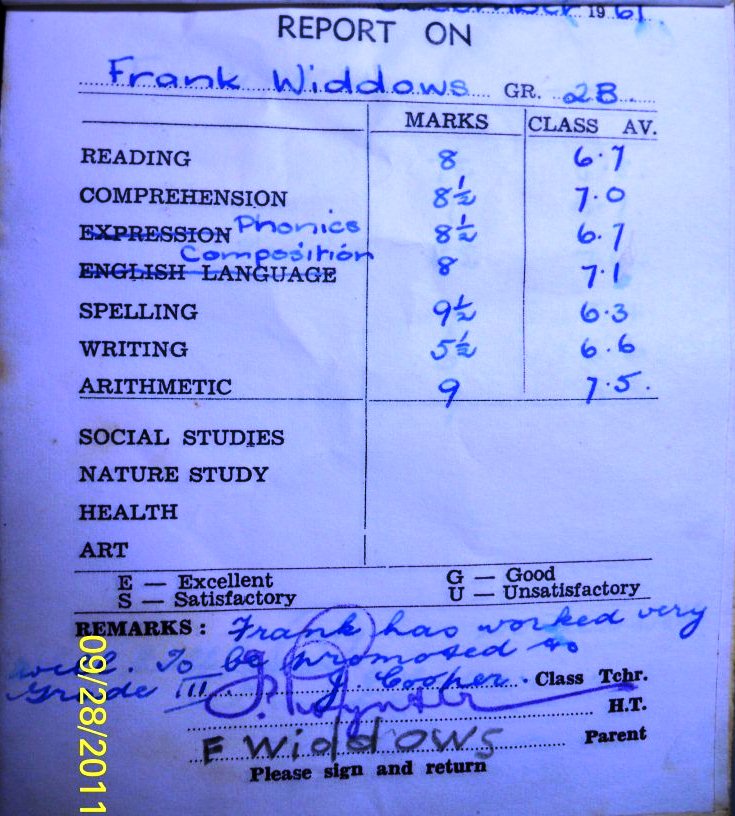 December 1961.
REPORT ON
Frank Widdows GR. 2B.
MARKS CLASS AV.
READING 8 6.7
COMPREHENSION 8½ 7.0
EXPRESSION Phonics 8½ 6.7
Composition
ENGLISH LANGUAGE 8 7.1
SPELLING 9½ 6.3
WRITING 5½ 6.6
ARITHMETIC 9 7.5.
SOCIAL STUDIES
NATURE STUDY
HEALTH
ART
E — Excellent G — Good
S — Satisfactory U — Unsatisfactory
REMARKS: Frank has worked very
well. To be promoted to
Grade III. J Cooper. Class Tchr.
H.T.
F Widdows Parent
Please sign and return
09/28/2011